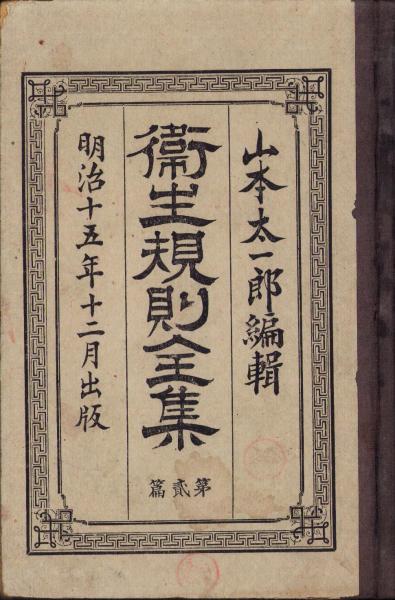 山本太一郎編輯
衞生規則全集
第貳篇
明治十五年十二月出版